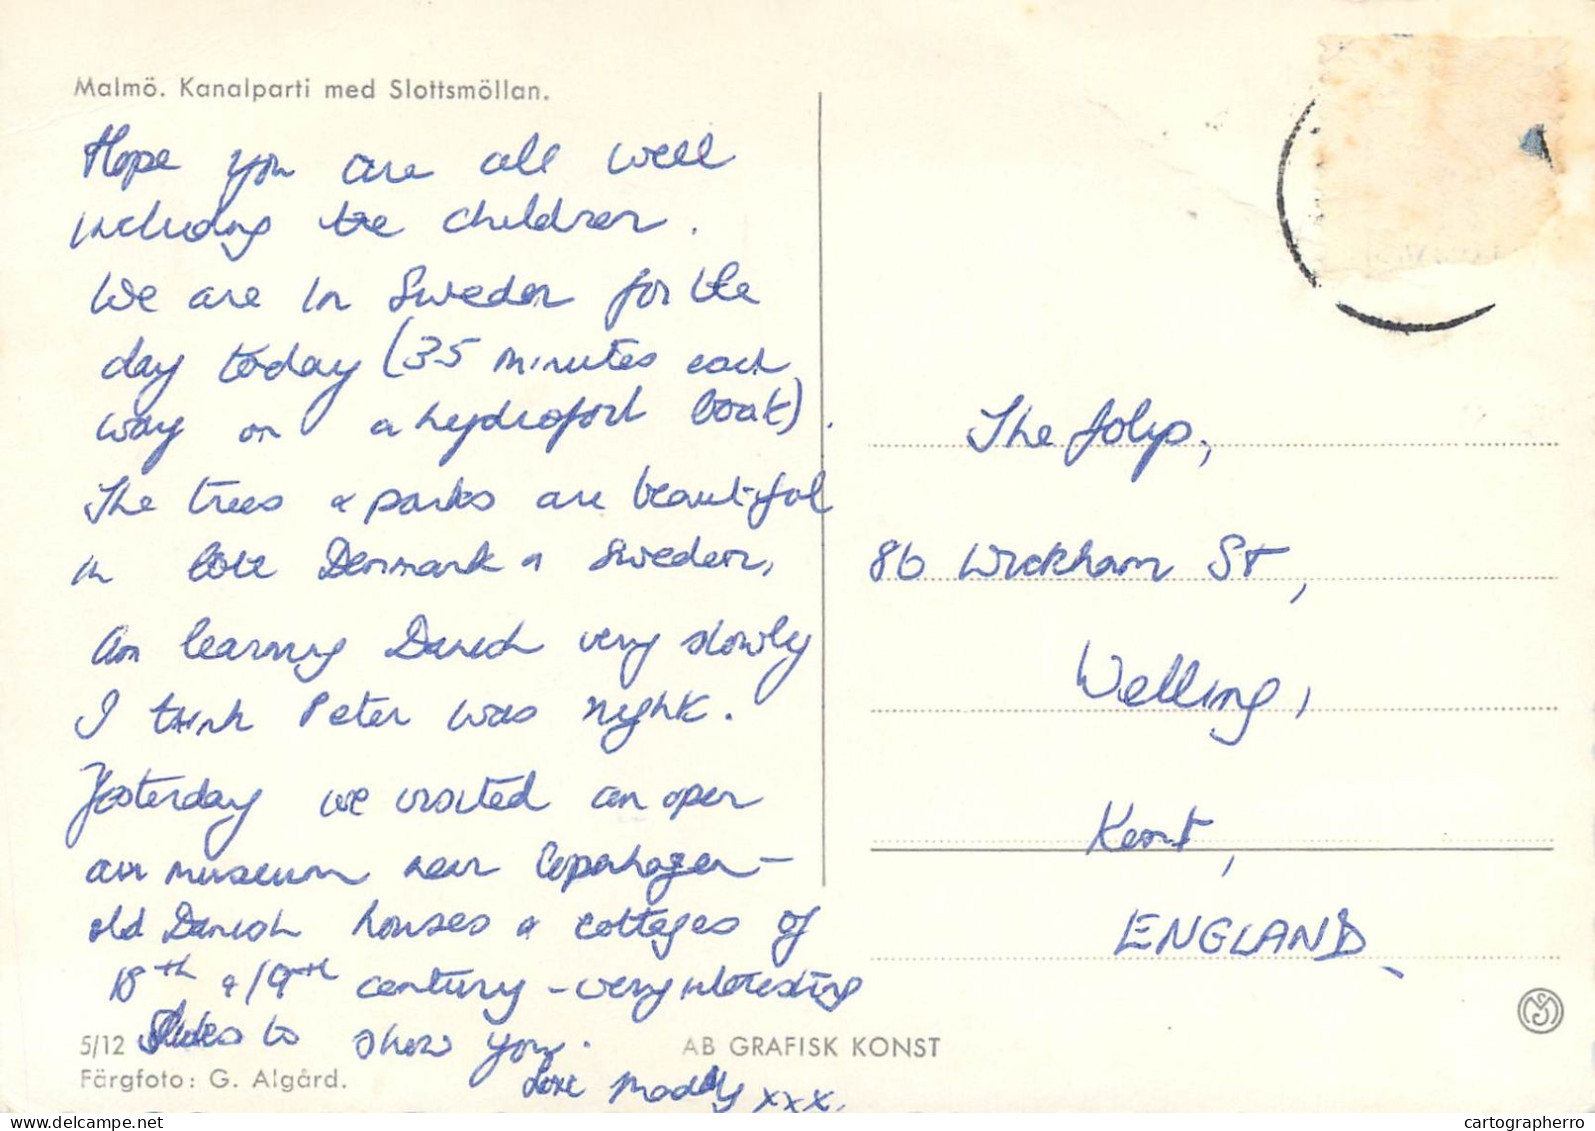 Malmö. Kanalparti med Slottsmöllan.
Hope you are all well
including the children.
We are in Sweden for the
day today (35 minutes each
way on a hydrofoil boat).
The trees & parks are beautiful
in both Denmark & Sweden,
Am learning Danish very slowly
I think Peter was right.
Yesterday we visited an open
air museum near Copenhagen -
old Danish houses & cottages of
18th & 19th century - very interesting
Slides to show you.
Love Maddy xxx.
5/12
AB GRAFISK KONST
Färgfoto: G. Algård.
The
86 Wickham St,
Welling,
Kent,
ENGLAND
cartographerro